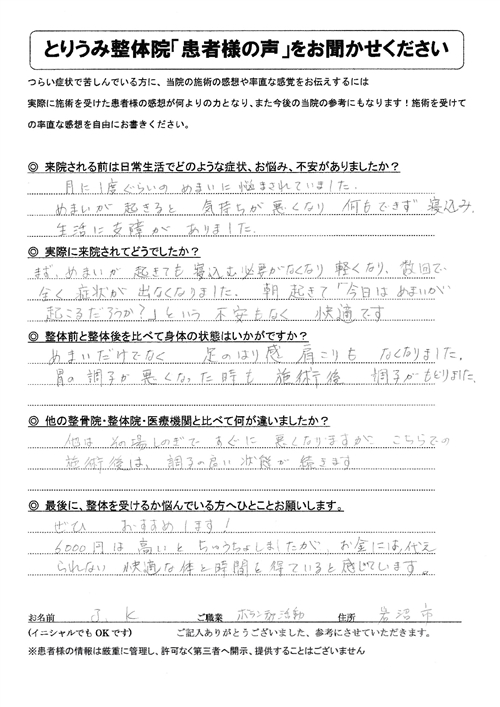 とりうみ整体院「患者様の声」をお聞かせください
つらい症状で苦しんでいる方に、当院の施術の感想や率直な感覚をお伝えするには
実際に施術を受けた患者様の感想が何よりの力となり、また今後の当院の参考にもなります！施術を受けて
の率直な感想を自由にお書きください。
◎ 来院される前は日常生活でどのような症状、お悩み、不安がありましたか？
月に1度ぐらいの めまいに悩まされていました。
めまいが 起きると 気持ちが悪くなり 何もできず 寝込み、
生活に支障が ありました。
◎ 実際に来院されてどうでしたか？
まず、めまいが 起きても 寝込む必要がなくなり 軽くなり、数回で
全く 症状が 出なくなりました。 朝 起きて「今日は めまいが
起こるだろうか？」という 不安もなく 快適です
◎ 整体前と整体後を比べて身体の状態はいかがですか？
めまいだけでなく 足のはり感 肩こりも なくなりました。
胃の調子が 悪くなった時も 施術後 調子がもどりました
◎ 他の整骨院・整体院・医療機関と比べて何が違いましたか？
他は その場しのぎで すぐに 悪くなりますが こちらでの
施術後は、調子の良い 状態が 続きます
◎ 最後に、整体を受けるか悩んでいる方へひとことお願いします。
ぜひ おすすめします！
6000円は 高いと ちゅうちょしましたが、お金には代え
られない 快適な体と時間を得ていると感じています。
お名前 J.K ご職業 ボランティア活動 住所 岩沼市
(イニシャルでもOKです) ご記入ありがとうございました、参考にさせていただきます。
※患者様の情報は厳重に管理し、許可なく第三者へ開示、提供することはございません